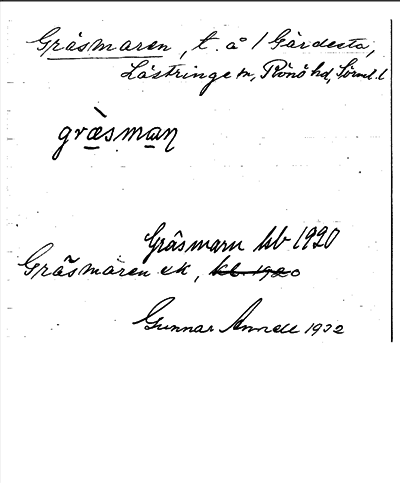 Gräsmaren, t. å 1 Gärdesta,
Lästringe sn, Rönö hd, Sörml. l
græ̀sman̥
Gräsmarn kb 1920
Gräsmaren ek, kb. 1920
Gunnar Annell 1932